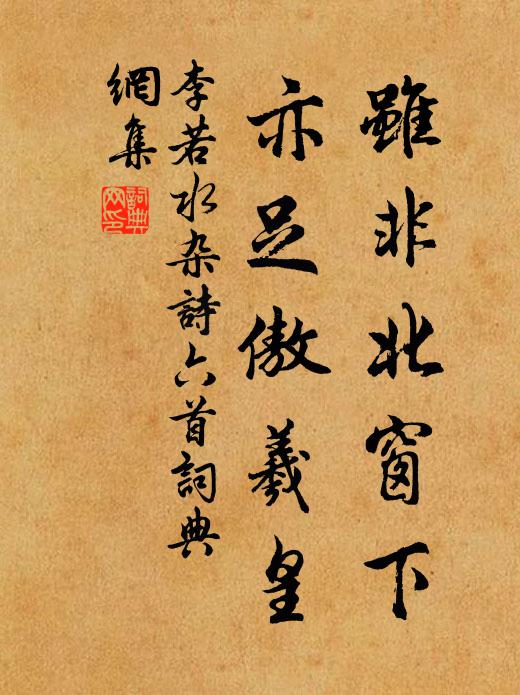 雖非北窗下
亦足傲羲皇
李若水杂詩六首詞典
網集
詞典
网印